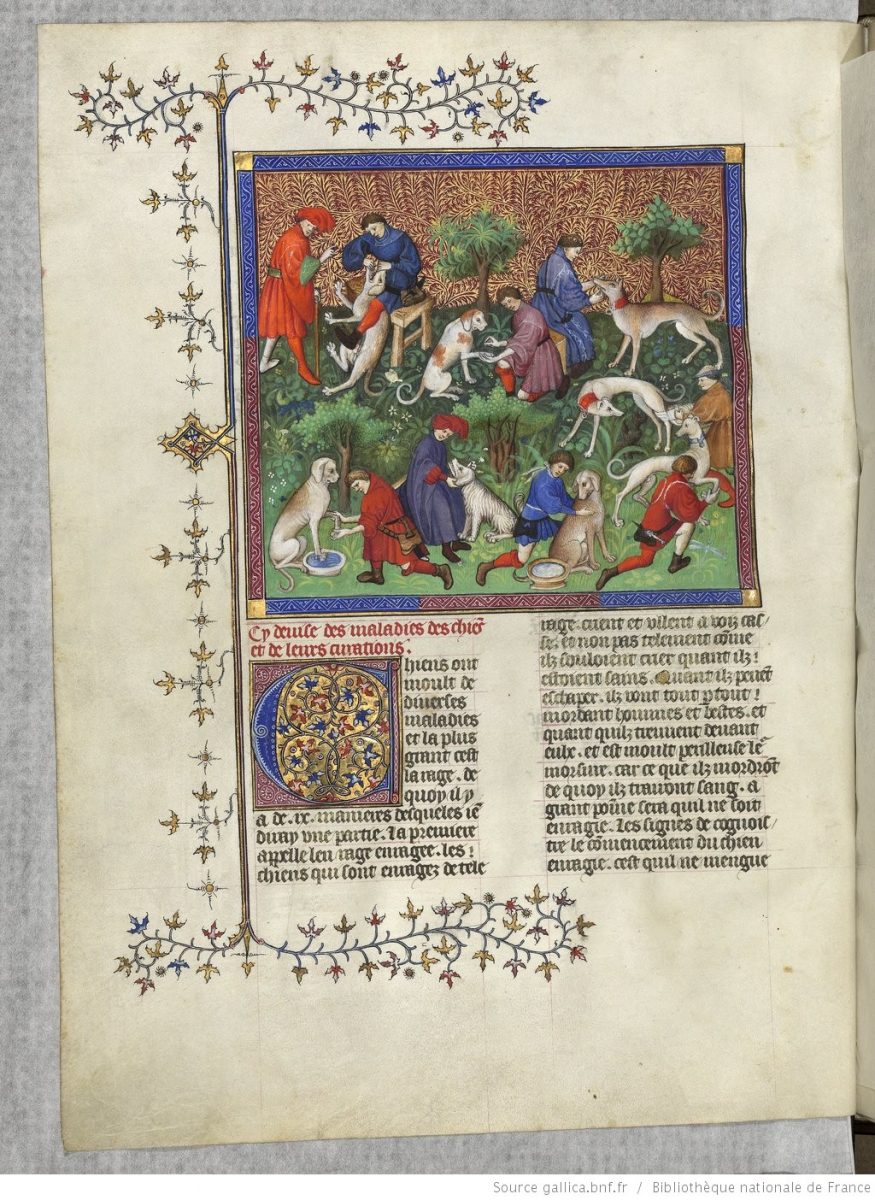 Cy deuise des maladies des chiēs
et de leurs curations.
Chiens ont
moult de
diuerses
maladies
et la plus
grant cest
la rage. de
quoy il y
a de .ix. manieres desqueles ie
diray vne partie. La premiere
appelle len rage enragee. les
chiens qui sont enragez de tele
rage. crient et vllent a voiz cas
se. et non pas telement cōme
ilz souloient crier quant ilz
estoient sains. Quant ilz peuent
eschaper. ilz vont tout ꝑ tout
mordant hommes et bestes. et
quant quilz treuuent deuant
eulx. et est moult perilleuse leur
morsure. car ce que ilz mordrōt
de quoy ilz trairont sang. a
grant poine sera quil ne soit
enragie. Les signes de cognois
tre le cōmencement du chien
enragie. cest quil ne mengue
Source gallica.bnf.fr / Bibliothèque nationale de France